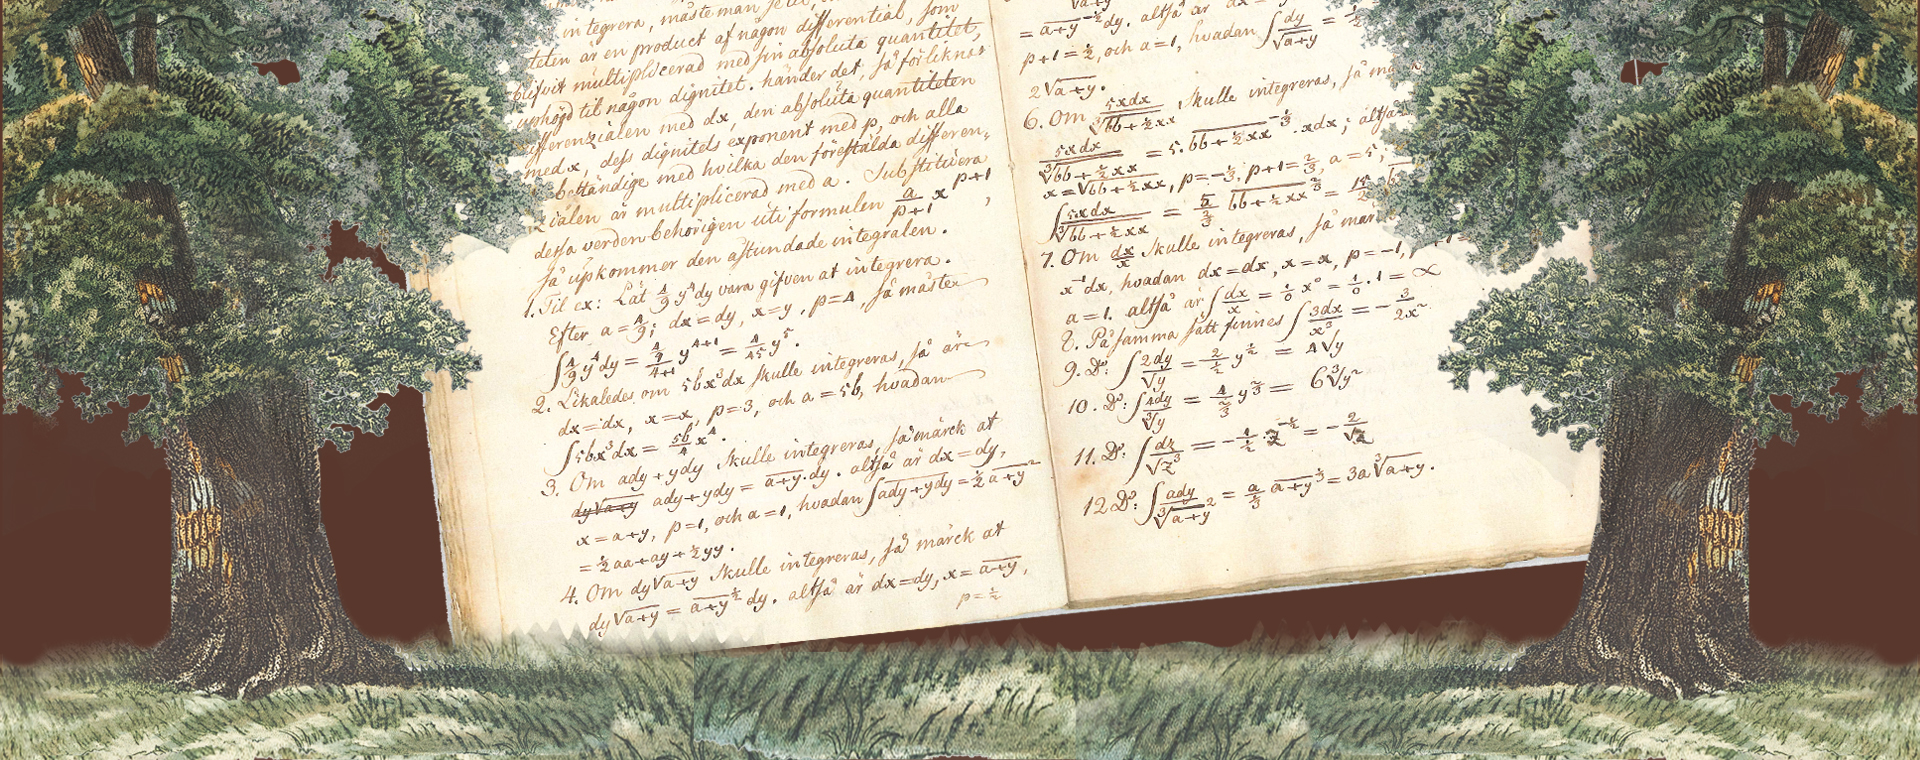 integrera, måste man
teten är en product af någon differential, som
blifvit multiplicerad med sin absoluta quantitet,
uphögd til någon dignitet. händer det, så förliknas
differenzialen med dx, den absoluta quantiteten
med x, dess dignitets exponent med p, och alla
beständige med hvilka den förestälda differen-
zialen är multiplicerad med a. Substituera
dessa verden behörigen uti formulen a/(p+1) x^(p+1),
så upkommer den åstundade integralen.
1. Til ex: Låt 4/9 y⁴dy vara gifven at integrera.
Efter a = 4/9; dx = dy, x = y, p = 4, så måste
∫4/9 y⁴dy = (4/9)/(4+1) y^(4+1) = 4/45 y⁵.
2. Likaledes om 5bx³dx skulle integreras, så är
dx = dx, x = x, p = 3, och a = 5b, hvadan
∫5bx³dx = 5b/4 x⁴.
3. Om ady + ydy skulle integreras, så märck at
ady + ydy = a+y . dy. altså är dx = dy,
x = a+y, p = 1, och a = 1, hvadan ∫ady + ydy = ½ a+y²
= ½aa + ay + ½yy.
4. Om dy√a+y skulle integreras, så märck at
dy√a+y = a+y^½ dy. altså är dx = dy, x = a+y,
p = ½
√a+y
= a+y^-½ dy. altså är dx =
p+1 = ½, och a = 1, hvadan ∫dy/√a+y =
2√a+y.
6. Om 5xdx/∛bb+½xx skulle integreras, så
5xdx/∛bb+½xx = 5. bb+½xx^-⅓ . xdx; altså
p = -⅓, p+1 = ⅔, a = 5,
∫5xdx/∛bb+½xx = 5/⅔ bb+½xx^⅔ =
7. Om dx/x skulle integreras, så
x⁻¹dx, hvadan dx = dx, x = x, p = -1,
a = 1. altså är ∫dx/x = 1/0 x⁰ = 1/0 . 1 = ∞
8. På samma sätt finnes ∫3dx/x³ = -3/2x²
9. D:o ∫2dy/√y = 2/½ y^½ = 4√y
10. D:o ∫4dy/∛y = 4/⅔ y^⅔ = 6∛y²
11. D:o ∫dz/√z³ = -1/½ z^-½ = -2/√z
12 D:o ∫ady/∛a+y² = a/⅓ a+y^⅓ = 3a∛a+y.